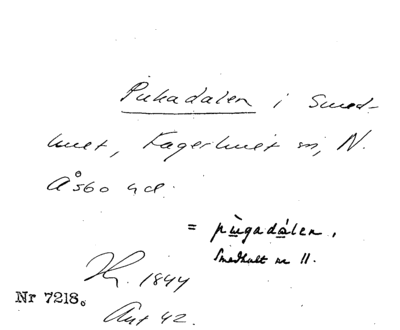 Pukadalen i Smed-
hult, Kagerhult sn, N.
Åsbo hd.
= pùgadálen,
Smedhult nr 11.
1844
Nr 7218.
Ant 42.